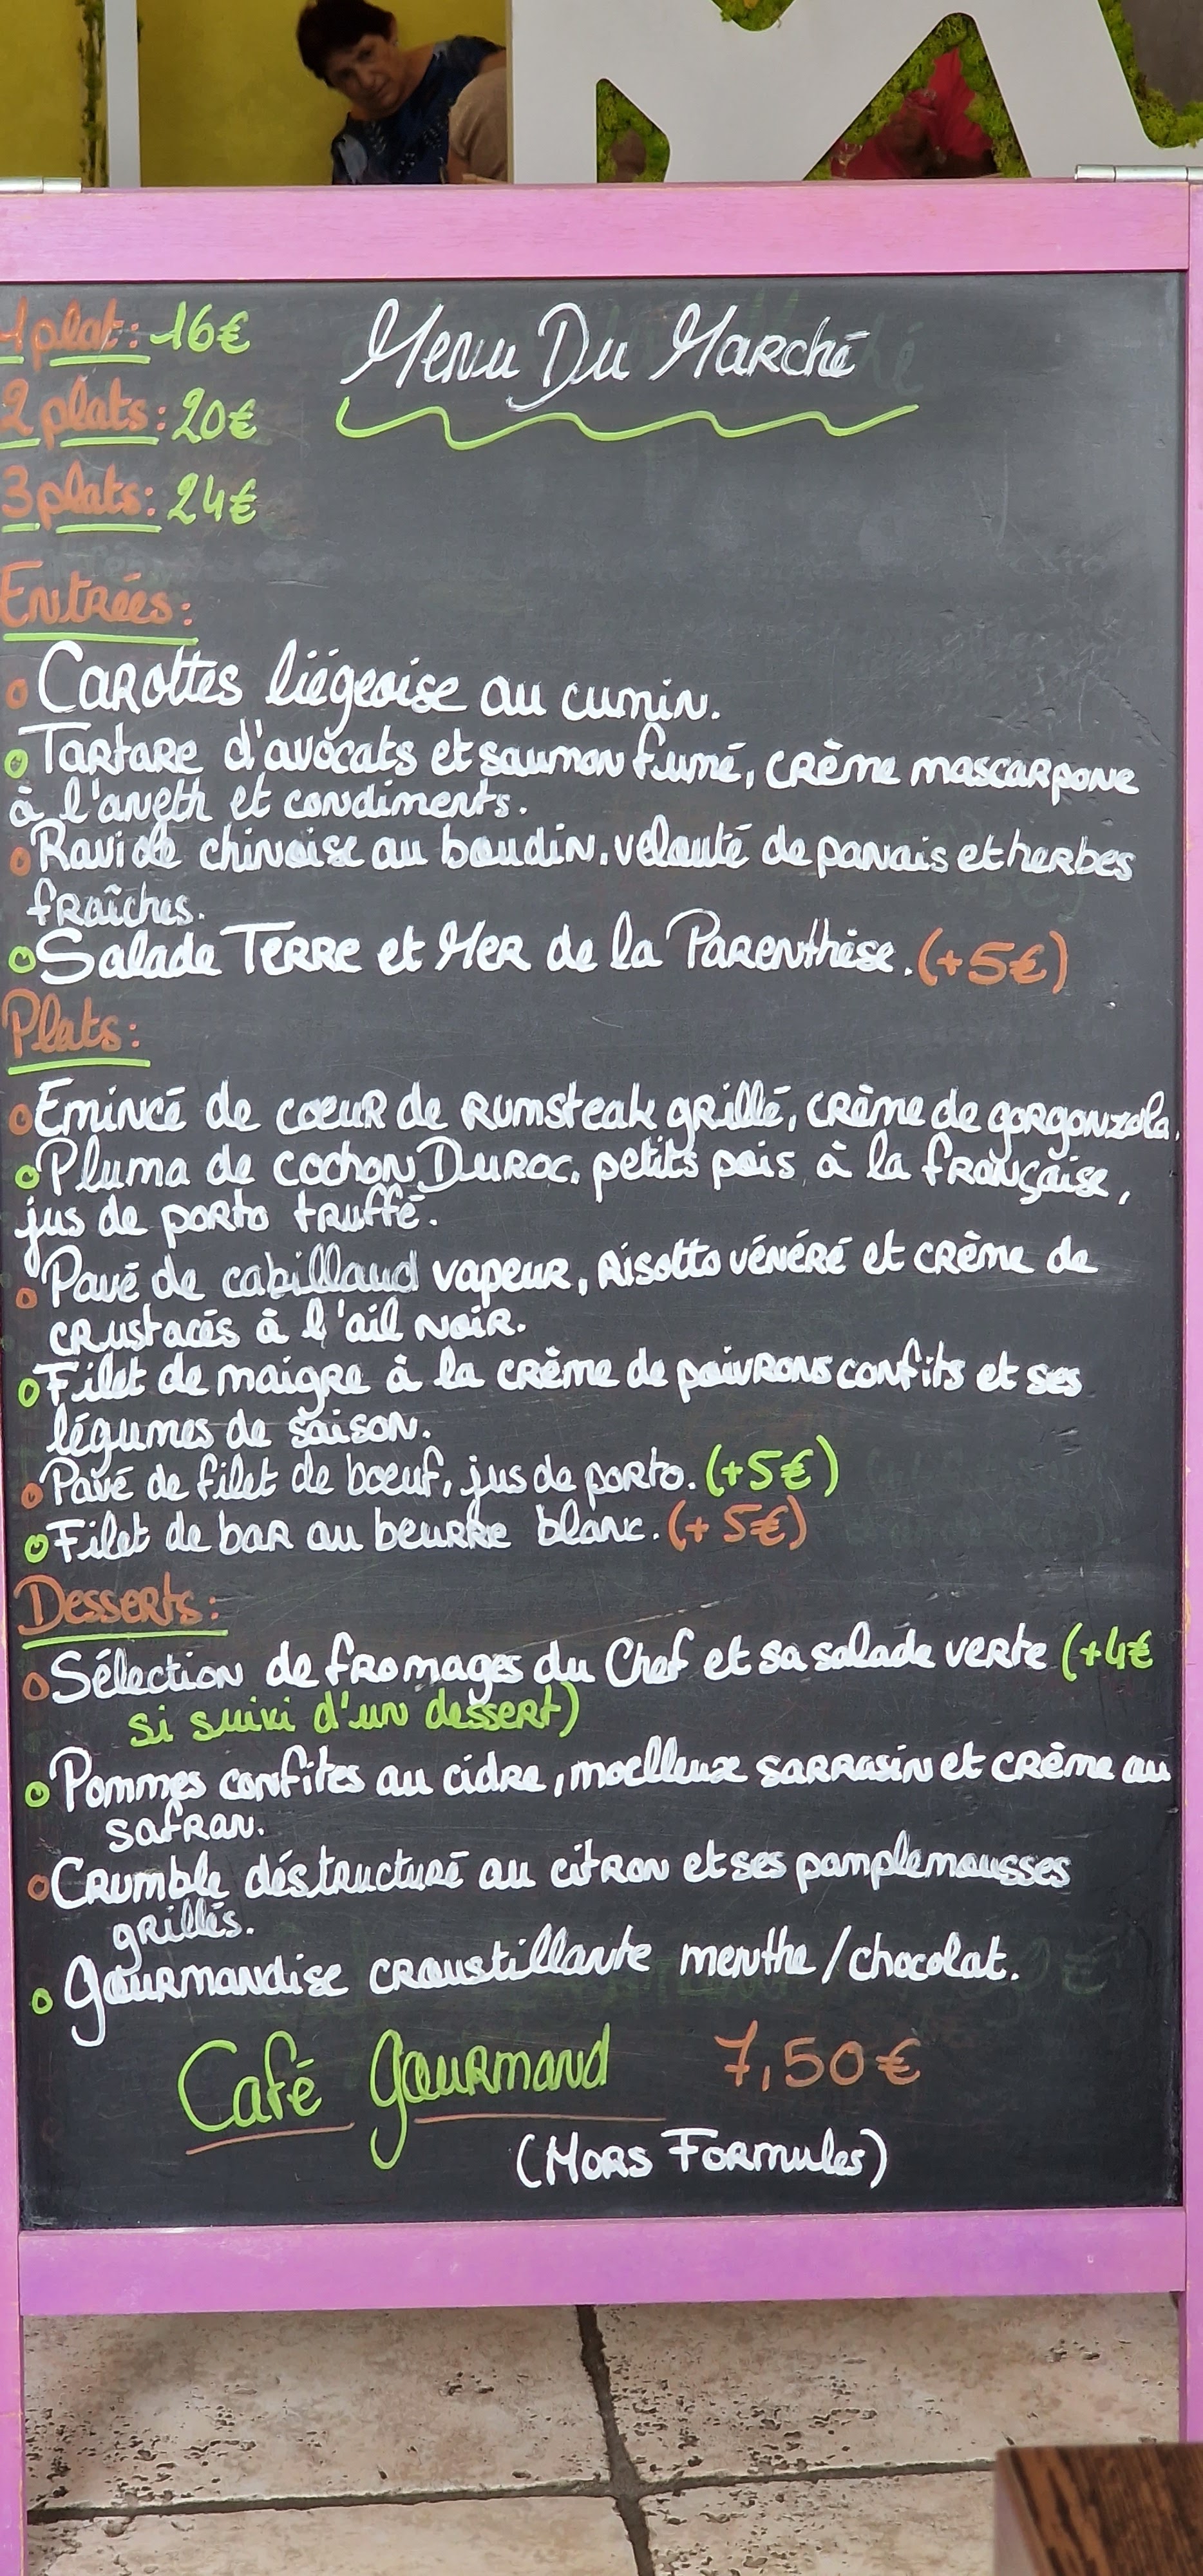 1 plat: 16€
2 plats: 20€
3 plats: 24€
Menu Du Marché
Entrées:
Carottes liégeoise au cumin.
Tartare d'avocats et saumon fumé, crème mascarpone
à l'aneth et condiments.
Raviole chinoise au boudin, velouté de panais et herbes
fraîches.
Salade Terre et Mer de la Parenthèse. (+5€)
Plats:
Emincé de coeur de rumsteak grillé, crème de gorgonzola.
Pluma de cochon Duroc, petits pois à la française,
jus de porto truffé.
Pavé de cabillaud vapeur, risotto vénéré et crème de
crustacés à l'ail noir.
Filet de maigre à la crème de poivrons confits et ses
légumes de saison.
Pavé de filet de boeuf, jus de porto. (+5€)
Filet de bar au beurre blanc. (+5€)
Desserts:
Sélection de fromages du Chef et sa salade verte (+4€
si suivi d'un dessert)
Pommes confites au cidre, moelleux sarrasin et crème au
safran.
Crumble déstructuré au citron et ses pamplemousses
grillés.
Gourmandise croustillante menthe/chocolat.
Café gourmand 7,50€
(Hors Formules)